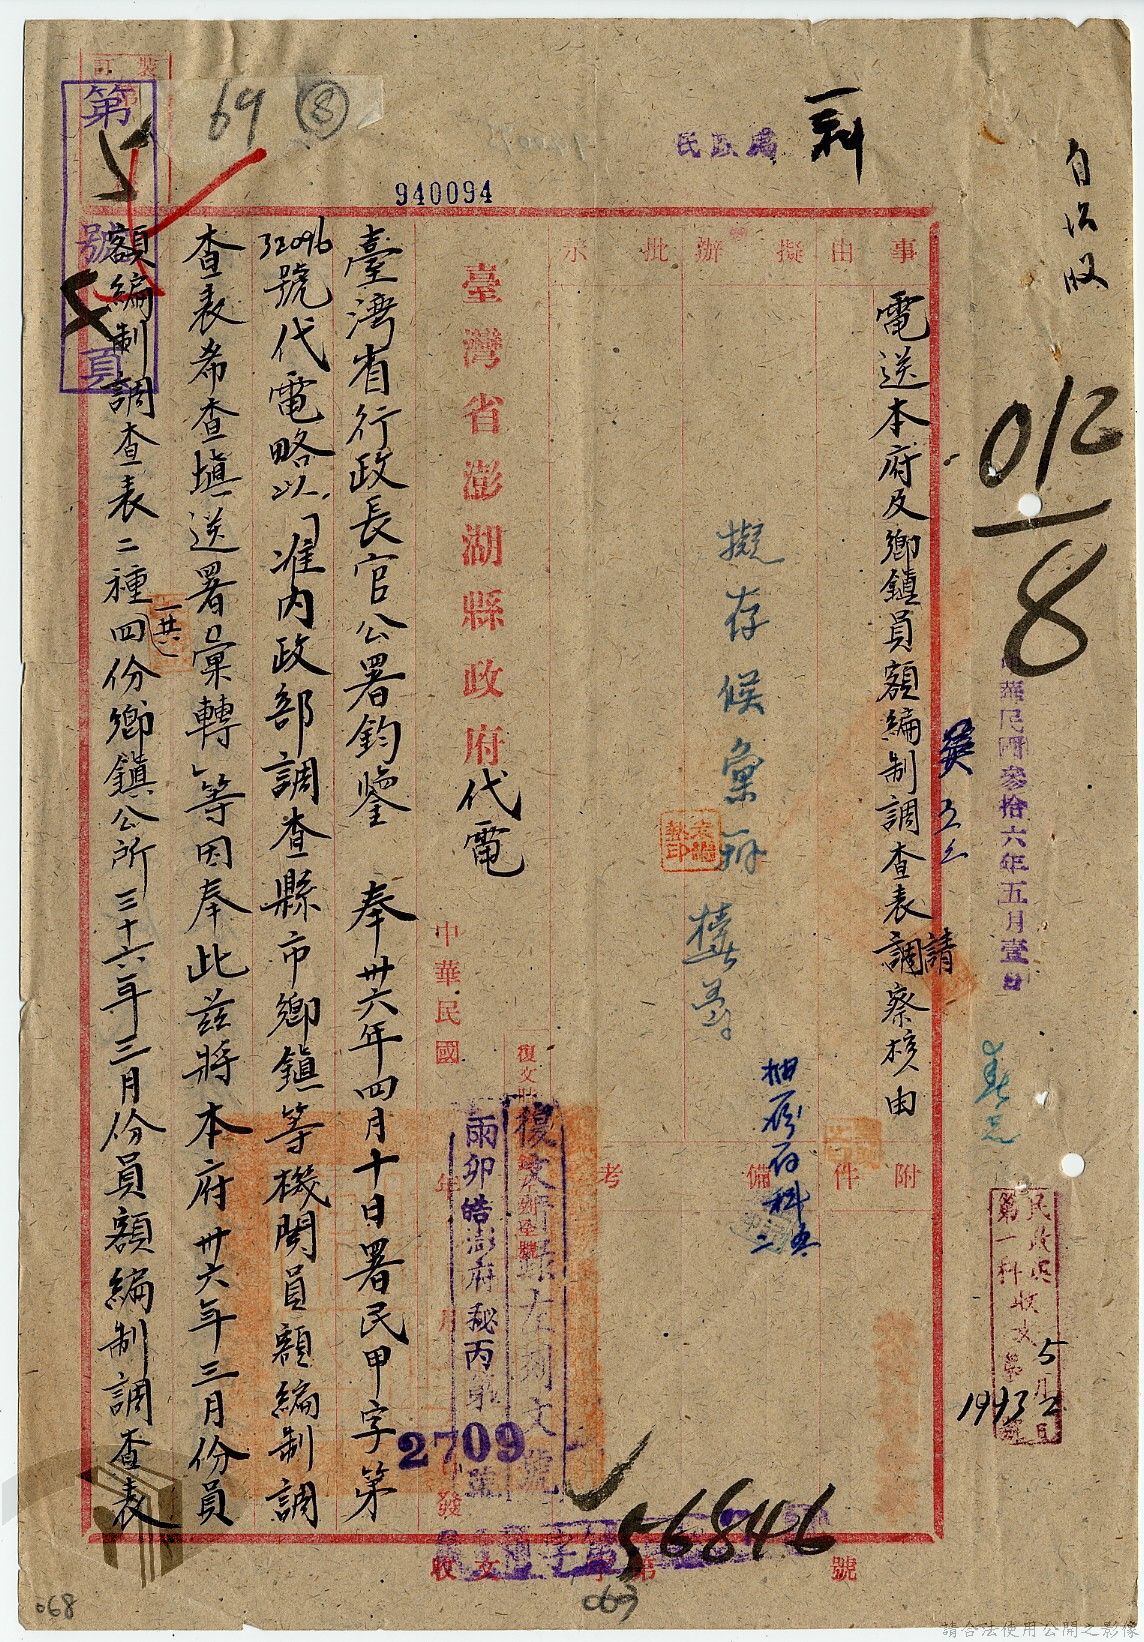 民政處
一科
自治股
940094
69 ⑧
裝 訂
第 5 號
頁
事由 擬辦 批示
電送本府及鄉鎮員額編制調查表請察核由
附件 備考
擬存候彙辦
012/8
中華民國參拾六年五月壹日
民政處收文第
第一科
5月2日
19432
臺灣省澎湖縣政府代電
中華民國 年 月 日發
復文時請錄左列文號
雨卯皓澎府秘丙字第
2709
號
臺灣省行政長官公署鈞鑒 奉卅六年四月十日署民甲字第
32096號代電略以「准內政部調查縣市鄉鎮等機関員額編制調
查表希查塡送署彙轉」等因奉此茲將本府卅六年三月份員
額編制調查表二種四份鄉鎮公所三十六年三月份員額編制調查表
收文 字第 56846 號
063
068
請合法使用公開之影像